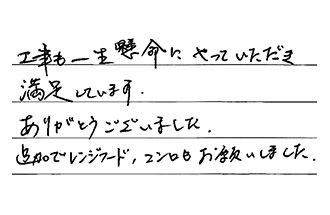 工事も一生懸命にやっていただき
満足しています.
ありがとうございました.
追加でレンジフード,コンロもお願いしました.